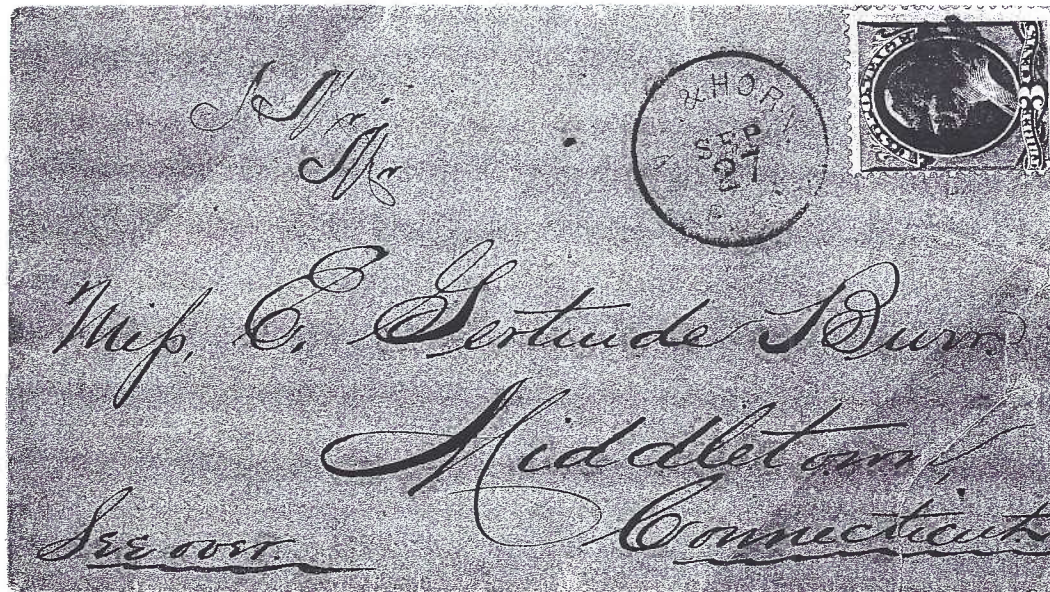 & HOR
SEP
27
U.S. POSTAGE
Miss, E. Gertrude Burr
Middletown,
Connecticut
See over.